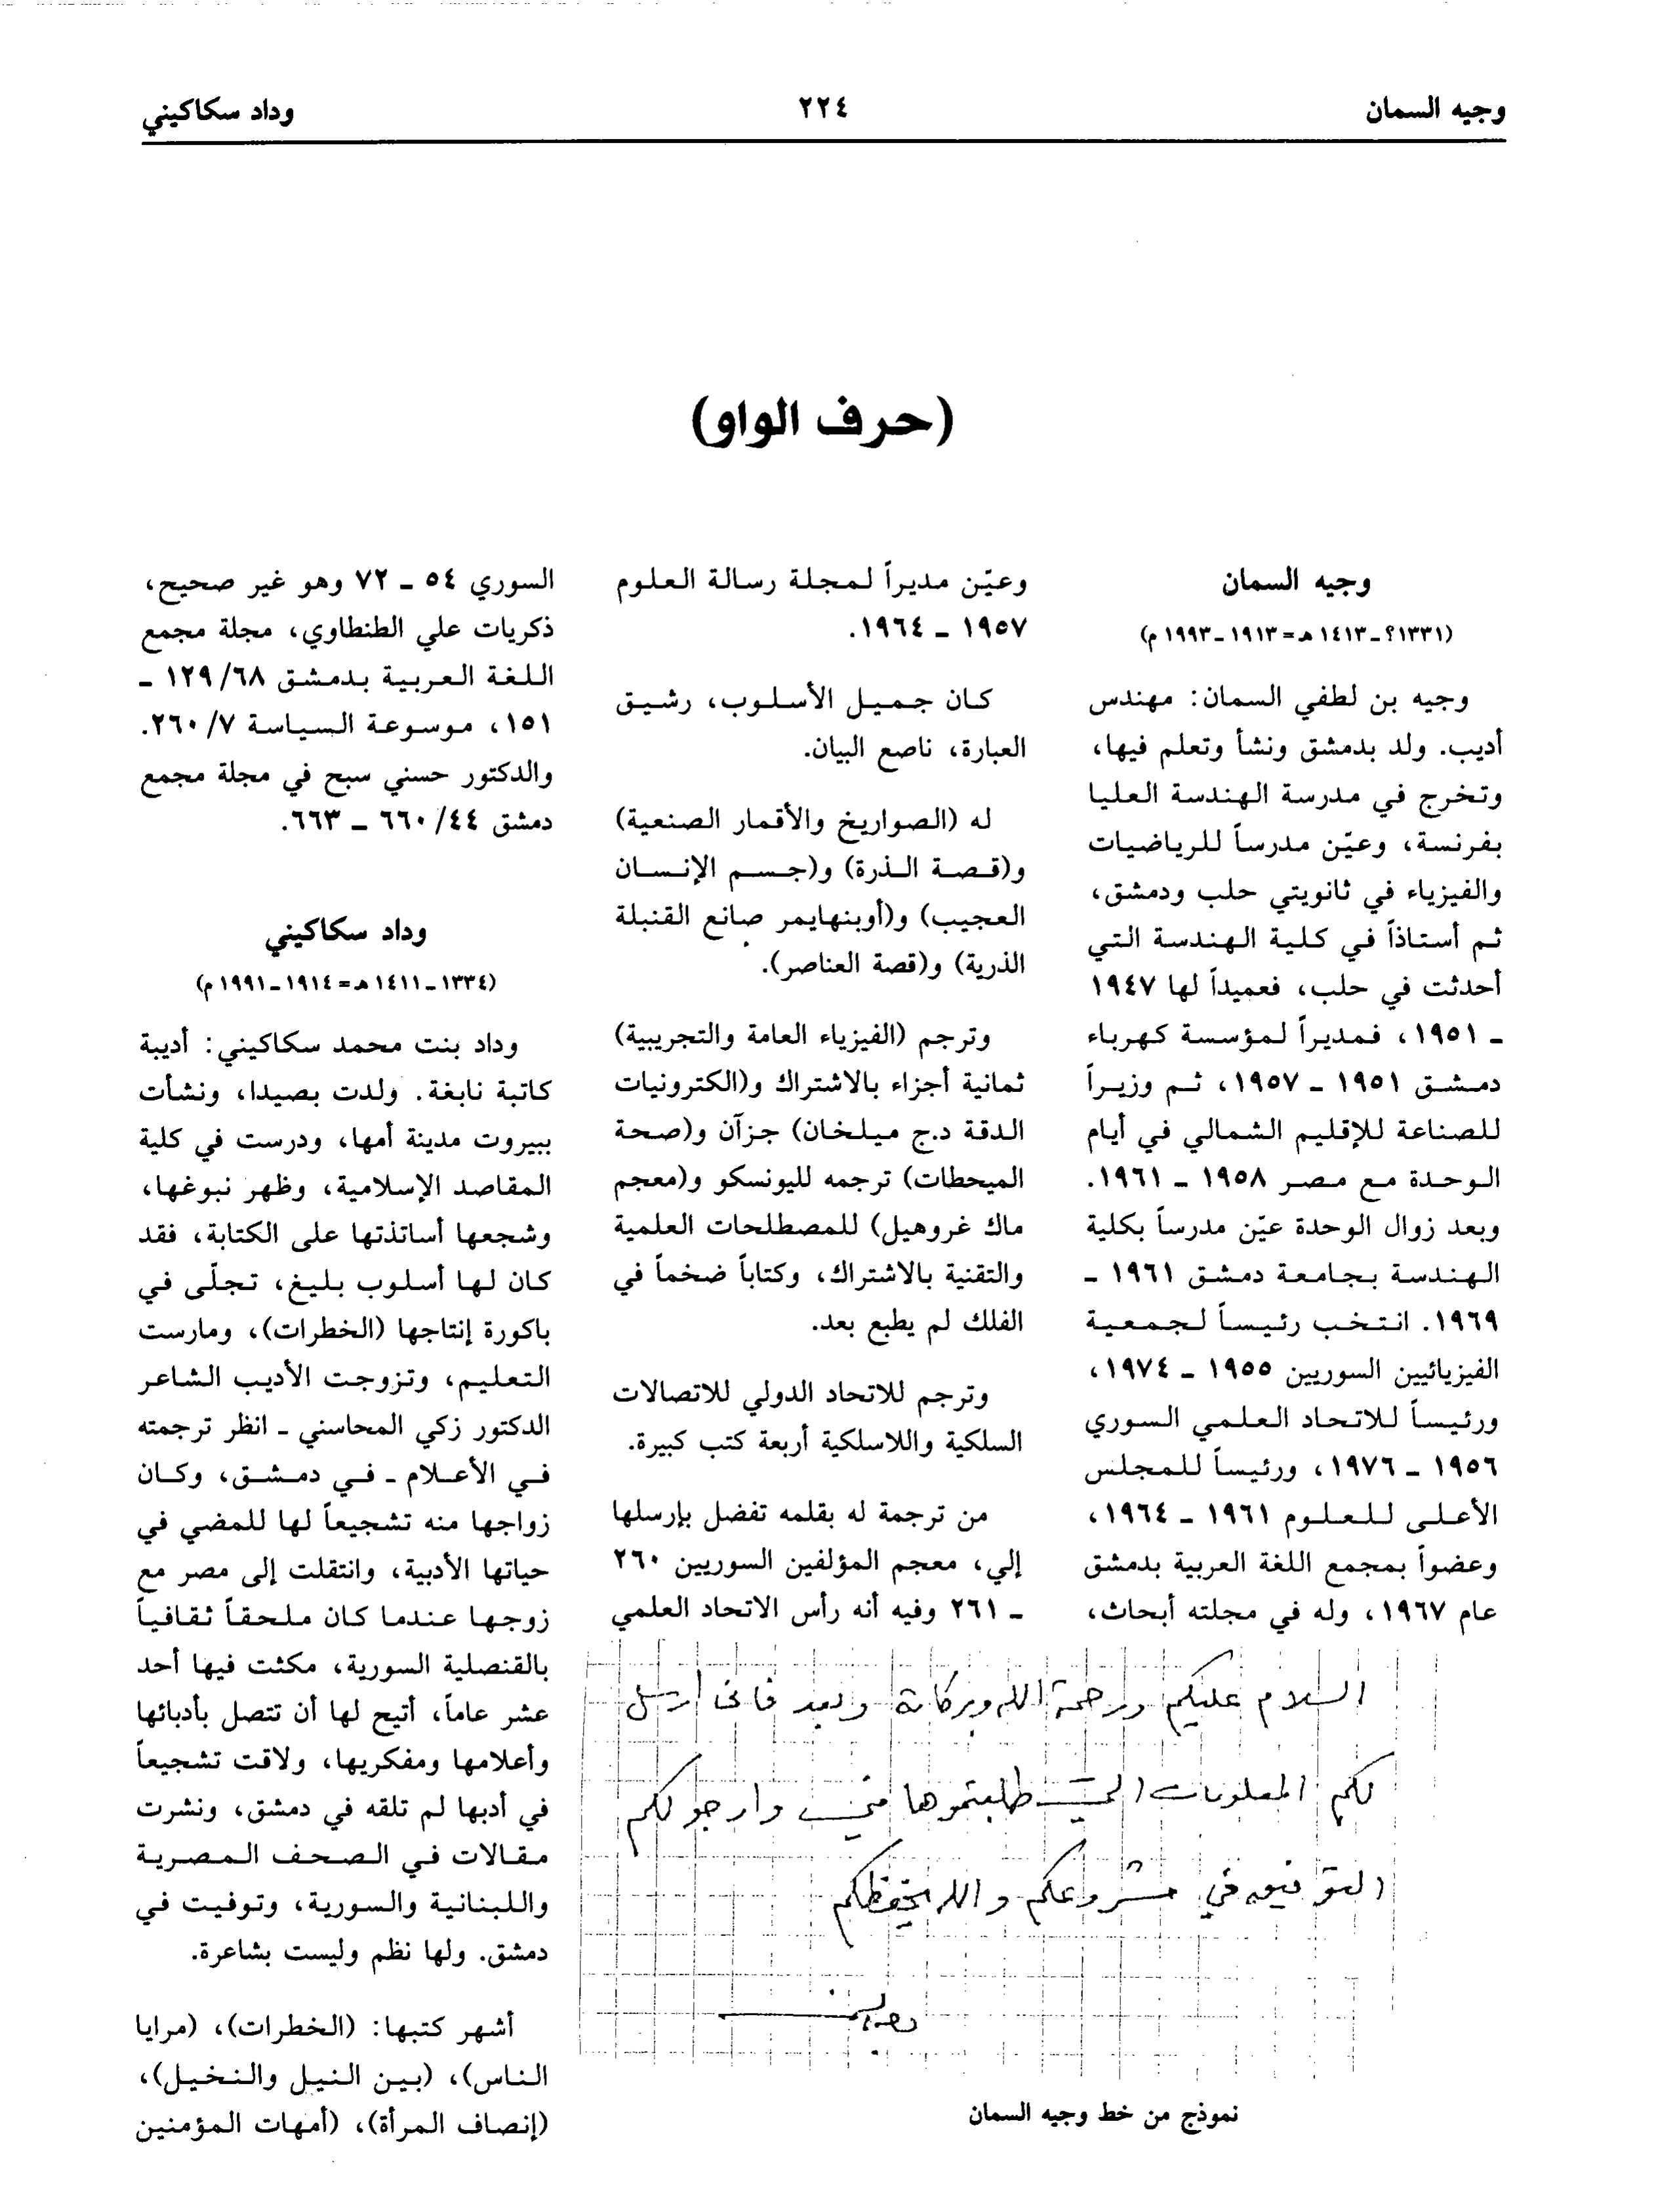 وجيه السمان
٢٢٤
وداد سكاكيني
(حرف الواو)
وجيه السمان
(١٣٣١؟ـ١٤١٣ هـ=١٩١٣ـ١٩٩٣ م)
وجيه بن لطفي السمان: مهندس
أديب. ولد بدمشق ونشأ وتعلم فيها،
وتخرج في مدرسة الهندسة العليا
بفرنسة، وعيّن مدرساً للرياضيات
والفيزياء في ثانويتي حلب ودمشق،
ثم أستاذاً في كلية الهندسة التي
أحدثت في حلب، فعميداً لها ١٩٤٧
ـ ١٩٥١، فمديراً لمؤسسة كهرباء
دمشق ١٩٥١ ـ ١٩٥٧، ثم وزيراً
للصناعة للإقليم الشمالي في أيام
الوحدة مع مصر ١٩٥٨ ـ ١٩٦١.
وبعد زوال الوحدة عيّن مدرساً بكلية
الهندسة بجامعة دمشق ١٩٦١ ـ
١٩٦٩. انتخب رئيساً لجمعية
الفيزيائيين السوريين ١٩٥٥ ـ ١٩٧٤،
ورئيساً للاتحاد العلمي السوري
١٩٥٦ ـ ١٩٧٦، ورئيساً للمجلس
الأعلى للعلوم ١٩٦١ ـ ١٩٦٤،
وعضواً بمجمع اللغة العربية بدمشق
عام ١٩٦٧، وله في مجلته أبحاث،
وعيّن مديراً لمجلة رسالة العلوم
١٩٥٧ ـ ١٩٦٤.
كان جميل الأسلوب، رشيق
العبارة، ناصع البيان.
له (الصواريخ والأقمار الصنعية)
و(قصة الذرة) و(جسم الإنسان
العجيب) و(أوبنهايمر صانع القنبلة
الذرية) و(قصة العناصر).
وترجم (الفيزياء العامة والتجريبية)
ثمانية أجزاء بالاشتراك و(الكترونيات
الدقة د.ج ميلخان) جزآن و(صحة
الميحطات) ترجمه لليونسكو و(معجم
ماك غروهيل) للمصطلحات العلمية
والتقنية بالاشتراك، وكتاباً ضخماً في
الفلك لم يطبع بعد.
وترجم للاتحاد الدولي للاتصالات
السلكية واللاسلكية أربعة كتب كبيرة.
من ترجمة له بقلمه تفضل بإرسلها
إلي، معجم المؤلفين السوريين ٢٦٠
ـ ٢٦١ وفيه أنه رأس الاتحاد العلمي
السلام عليكم ورحمة الله وبركاته وبعد فاني ارسل
لكم المعلومات التي طلبتموها مني وارجو لكم
التوفيق في مشروعكم والله يحفظكم
نموذج من خط وجيه السمان
السوري ٥٤ ـ ٧٢ وهو غير صحيح،
ذكريات علي الطنطاوي، مجلة مجمع
اللغة العربية بدمشق ١٢٩/٦٨ ـ
١٥١، موسوعة السياسة ٢٦٠/٧.
والدكتور حسني سبح في مجلة مجمع
دمشق ٦٦٠/٤٤ ـ ٦٦٣.
وداد سكاكيني
(١٣٣٤ـ١٤١١ هـ=١٩١٤ـ١٩٩١ م)
وداد بنت محمد سكاكيني: أديبة
كاتبة نابغة. ولدت بصيدا، ونشأت
ببيروت مدينة أمها، ودرست في كلية
المقاصد الإسلامية، وظهر نبوغها،
وشجعها أساتذتها على الكتابة، فقد
كان لها أسلوب بليغ، تجلّى في
باكورة إنتاجها (الخطرات)، ومارست
التعليم، وتزوجت الأديب الشاعر
الدكتور زكي المحاسني ـ انظر ترجمته
في الأعلام ـ في دمشق، وكان
زواجها منه تشجيعاً لها للمضي في
حياتها الأدبية، وانتقلت إلى مصر مع
زوجها عندما كان ملحقاً ثقافياً
بالقنصلية السورية، مكثت فيها أحد
عشر عاماً، أتيح لها أن تتصل بأدبائها
وأعلامها ومفكريها، ولاقت تشجيعاً
في أدبها لم تلقه في دمشق، ونشرت
مقالات في الصحف المصرية
واللبنانية والسورية، وتوفيت في
دمشق. ولها نظم وليست بشاعرة.
أشهر كتبها: (الخطرات)، (مرايا
الناس)، (بين النيل والنخيل)،
(إنصاف المرأة)، (أمهات المؤمنين